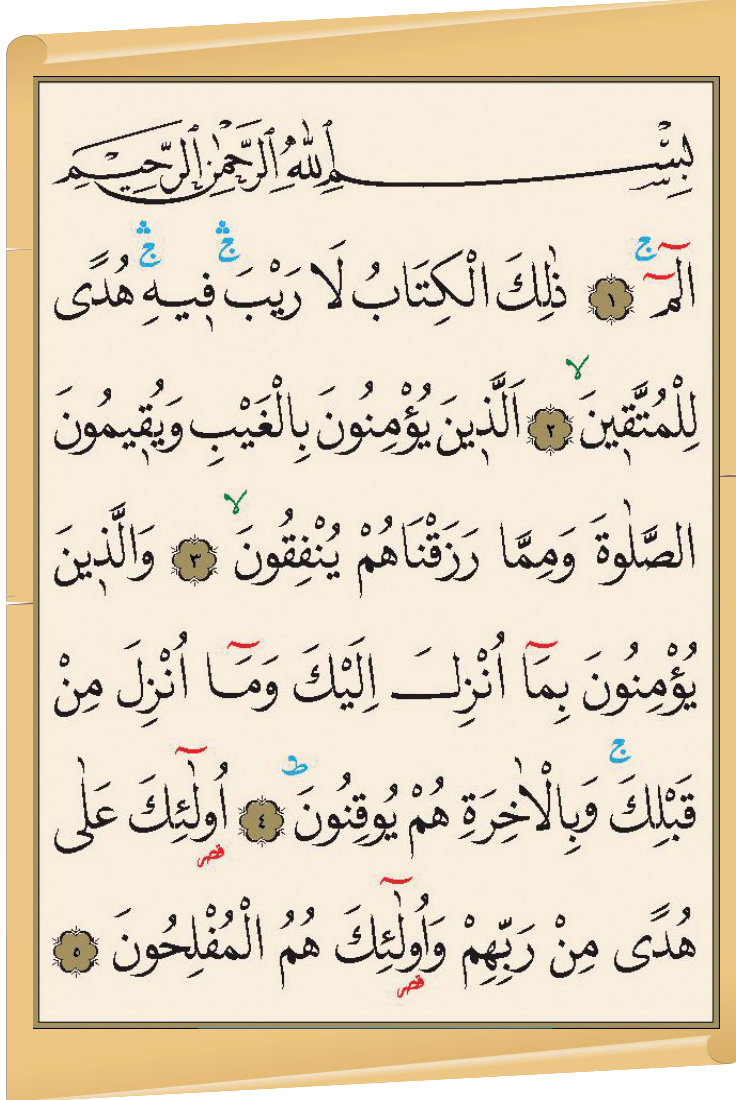 بِسْمِ اللّٰهِ الرَّحْمٰنِ الرَّحِيمِ
الٓمٓ ج ﴿١﴾ ذٰلِكَ الْكِتَابُ لَا رَيْبَ ۛ ج فِيهِ ۛ ج هُدًى
لِلْمُتَّقِينَ لا ﴿٢﴾ اَلَّذِينَ يُؤْمِنُونَ بِالْغَيْبِ وَيُقِيمُونَ
الصَّلٰوةَ وَمِمَّا رَزَقْنَاهُمْ يُنْفِقُونَ لا ﴿٣﴾ وَالَّذِينَ
يُؤْمِنُونَ بِمَٓا اُنْزِلَ اِلَيْكَ وَمَٓا اُنْزِلَ مِنْ
قَبْلِكَ ج وَبِالْاٰخِرَةِ هُمْ يُوقِنُونَ ط ﴿٤﴾ اُولٰٓئِكَ قصر عَلٰى
هُدًى مِنْ رَبِّهِمْ وَاُولٰٓئِكَ قصر هُمُ الْمُفْلِحُونَ ﴿٥﴾